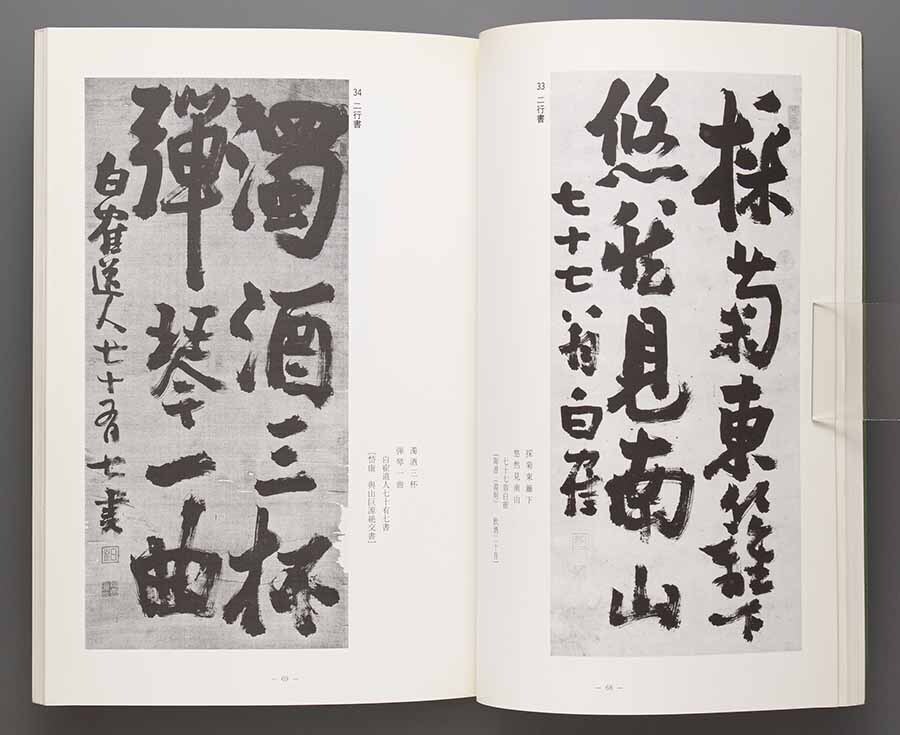 33 二行書
採菊東籬下
悠然見南山
七十七翁白寉
採菊東籬下
悠然見南山
七十七翁白
〔陶潜(淵明) 飲酒二十首〕
― 68 ―
34 二行書
濁酒三杯
彈琴一曲
白寉道人七十有七書
濁酒三杯
弾琴一曲
道人七十有七書
〔嵆康 與山巨源絶交書〕
― 69 ―